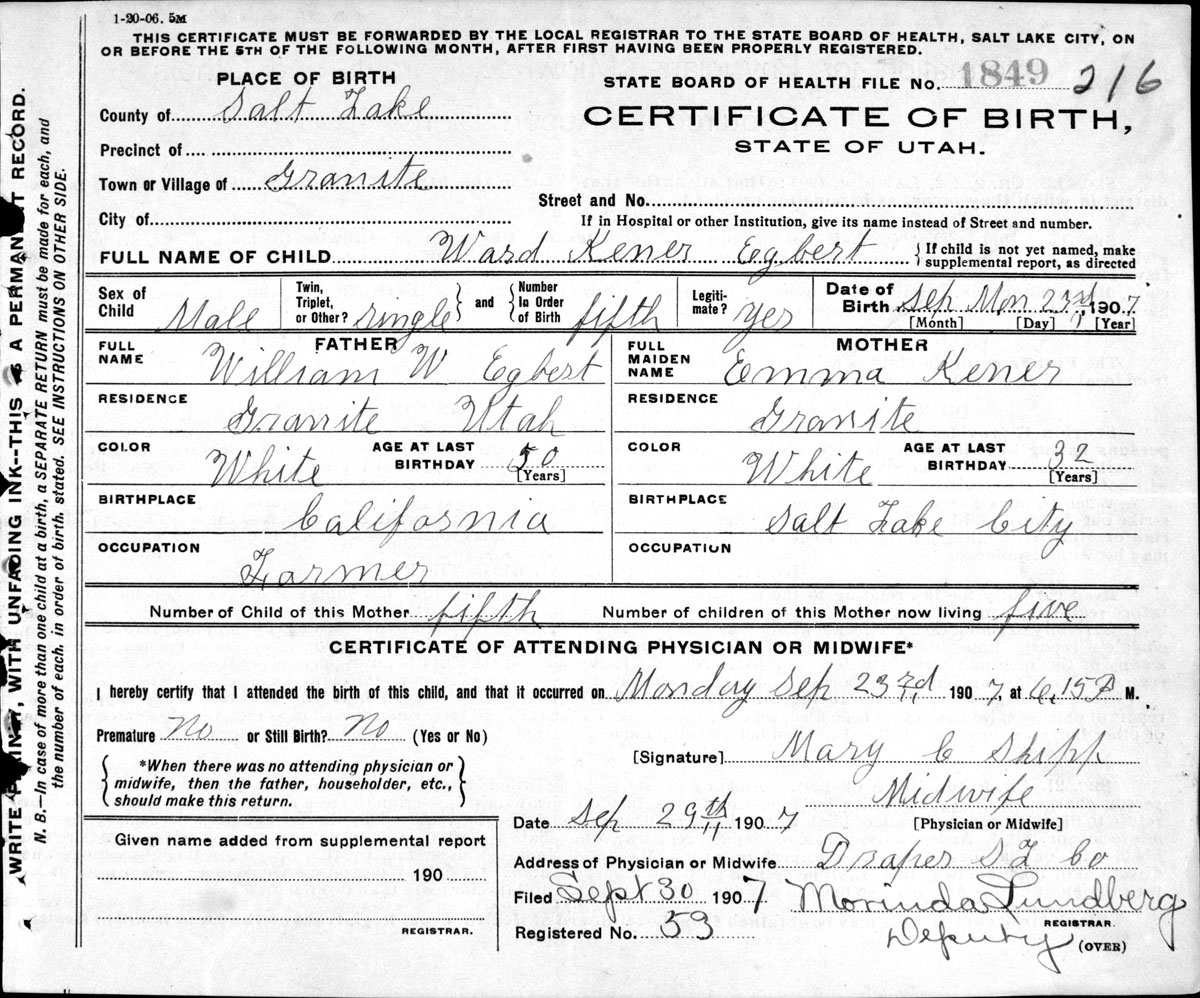 1-20-06. 5M
THIS CERTIFICATE MUST BE FORWARDED BY THE LOCAL REGISTRAR TO THE STATE BOARD OF HEALTH, SALT LAKE CITY, ON
OR BEFORE THE 5TH OF THE FOLLOWING MONTH, AFTER FIRST HAVING BEEN PROPERLY REGISTERED.
PLACE OF BIRTH
STATE BOARD OF HEALTH FILE NO. 1849 216
County of Salt Lake
CERTIFICATE OF BIRTH,
STATE OF UTAH.
Precinct of
Town or Village of Granite
Street and No.
City of
If in Hospital or other Institution, give its name instead of Street and number.
FULL NAME OF CHILD Ward Kener Egbert { If child is not yet named, make supplemental report, as directed
Sex of Child Male
Twin, Triplet, or Other? single } and { Number In Order of Birth fifth
Legiti-mate? yes
Date of Birth Sep Mon 23rd, 1907
[Month] [Day] [Year]
FATHER
FULL NAME William W Egbert
RESIDENCE Granite Utah
COLOR White AGE AT LAST BIRTHDAY 50 [Years]
BIRTHPLACE California
OCCUPATION Farmer
MOTHER
FULL MAIDEN NAME Emma Kener
RESIDENCE Granite
COLOR White AGE AT LAST BIRTHDAY 32 [Years]
BIRTHPLACE Salt Lake City
OCCUPATION
Number of Child of this Mother fifth Number of children of this Mother now living five
CERTIFICATE OF ATTENDING PHYSICIAN OR MIDWIFE*
I hereby certify that I attended the birth of this child, and that it occurred on Monday Sep 23rd, 1907, at 6,15 P M.
Premature No or Still Birth? No (Yes or No)
{ *When there was no attending physician or
midwife, then the father, householder, etc.,
should make this return. }
[Signature] Mary C Shipp
Midwife
[Physician or Midwife]
Date Sep 29th 1907
Address of Physician or Midwife Draper S L Co
Filed Sept 30 1907 Morinda Lundberg
REGISTRAR.
Registered No. 53 Deputy (OVER)
Given name added from supplemental report
190
REGISTRAR.
WRITE PLAINLY, WITH UNFADING INK--THIS IS A PERMANENT RECORD.
N. B.—In case of more than one child at a birth, a SEPARATE RETURN must be made for each, and
the number of each, in order of birth, stated. SEE INSTRUCTIONS ON OTHER SIDE.